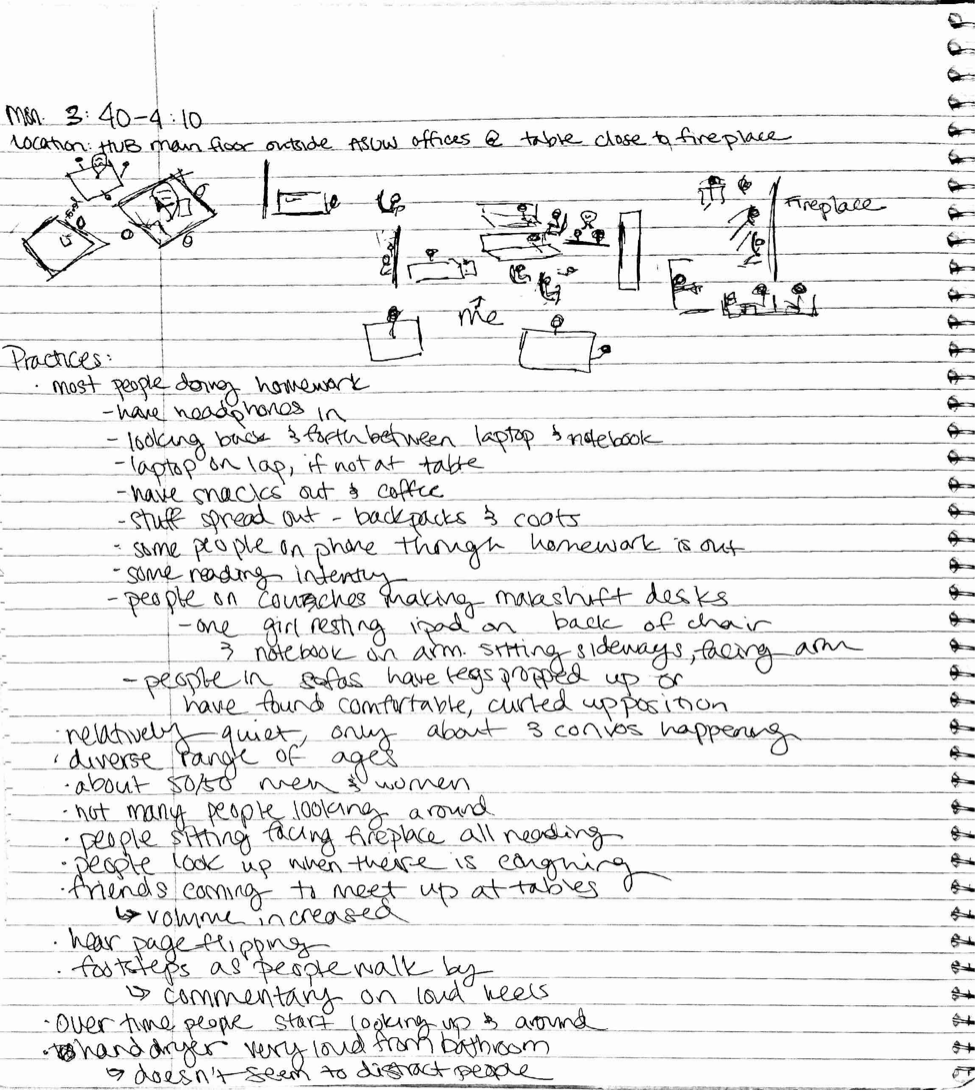 Mon. 3:40-4:10
Location: HUB main floor outside ASUW offices @ table close to fireplace
Fireplace
me
Practices:
· most people doing homework
- have headphones in
- looking back & forth between laptop & notebook
- laptop on lap, if not at table
- have snacks out & coffee
- stuff spread out - backpacks & coats
- some people on phone though homework is out
- some reading intently
- people on couches making makeshift desks
- one girl resting ipad on back of chair
& notebook on arm. sitting sideways, facing arm
- people in sofas have legs propped up or
have found comfortable, curled up position
· relatively quiet, only about 3 convos happening
· diverse range of ages
· about 50/50 men & women
· not many people looking around
· people sitting facing fireplace all reading
· people look up when there is coughing
· friends coming to meet up at tables
↳ volume increased
· hear page flipping
· footsteps as people walk by
↳ commentary on loud heels
· over time people start looking up & around
· hand dryer very loud from bathroom
↳ doesn't seem to distract people